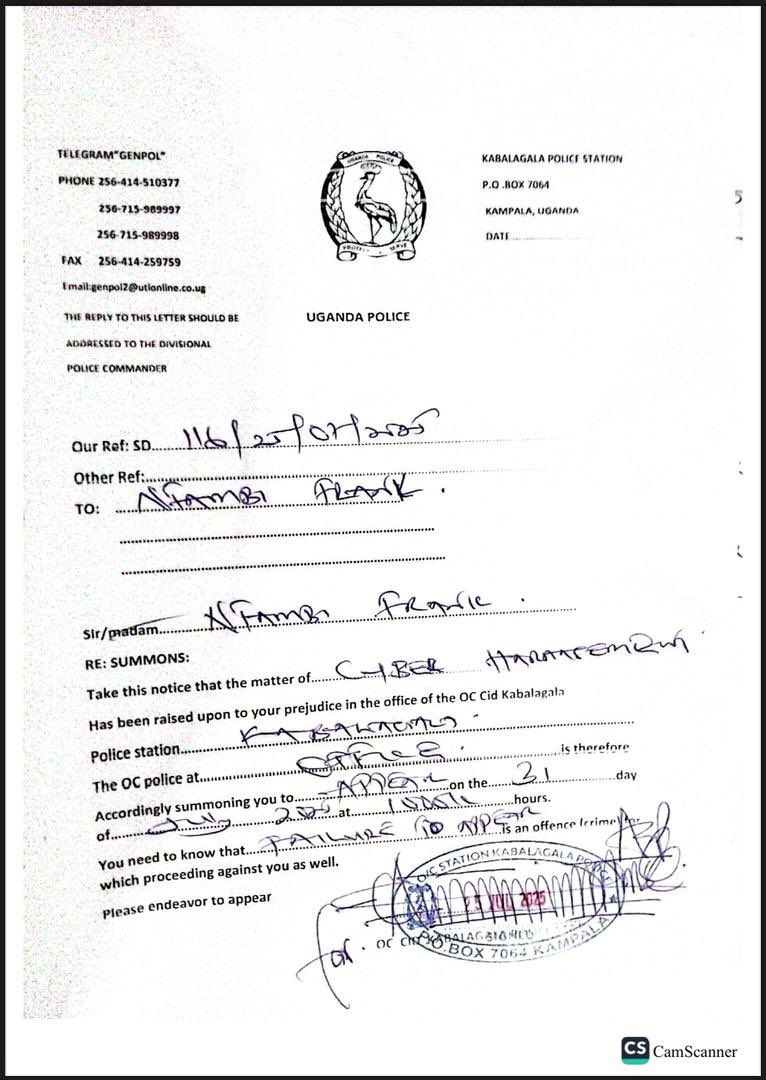 TELEGRAM"GENPOL"
PHONE 256-414-510377
256-715-989997
256-715-989998
FAX 256-414-259759
Email:genpol2@utlonline.co.ug
THE REPLY TO THIS LETTER SHOULD BE
ADDRESSED TO THE DIVISIONAL
POLICE COMMANDER
UGANDA POLICE
PROTECT & SERVE
UGANDA POLICE
KABALAGALA POLICE STATION
P.O .BOX 7064
KAMPALA, UGANDA
DATE
Our Ref: SD 116/25/07/2025
Other Ref:
TO: NTAMBI FRANK.
Sir/madam NTAMBI FRANK.
RE: SUMMONS:
Take this notice that the matter of CYBER HARASSEMENT
Has been raised upon to your prejudice in the office of the OC Cid Kabalagala
Police station KABALAGALA
The OC police at OFFICE. is therefore
Accordingly summoning you to APPEAR on the 31 day
of July 2025 at hours.
You need to know that FAILURE TO APPEAR is an offence (crime) for
which proceeding against you as well.
Please endeavor to appear
for. OC CID KABALAGALA
STATION KABALAGALA POLICE
25 JUL 2025
P.O.BOX 7064 KAMPALA
CS CamScanner